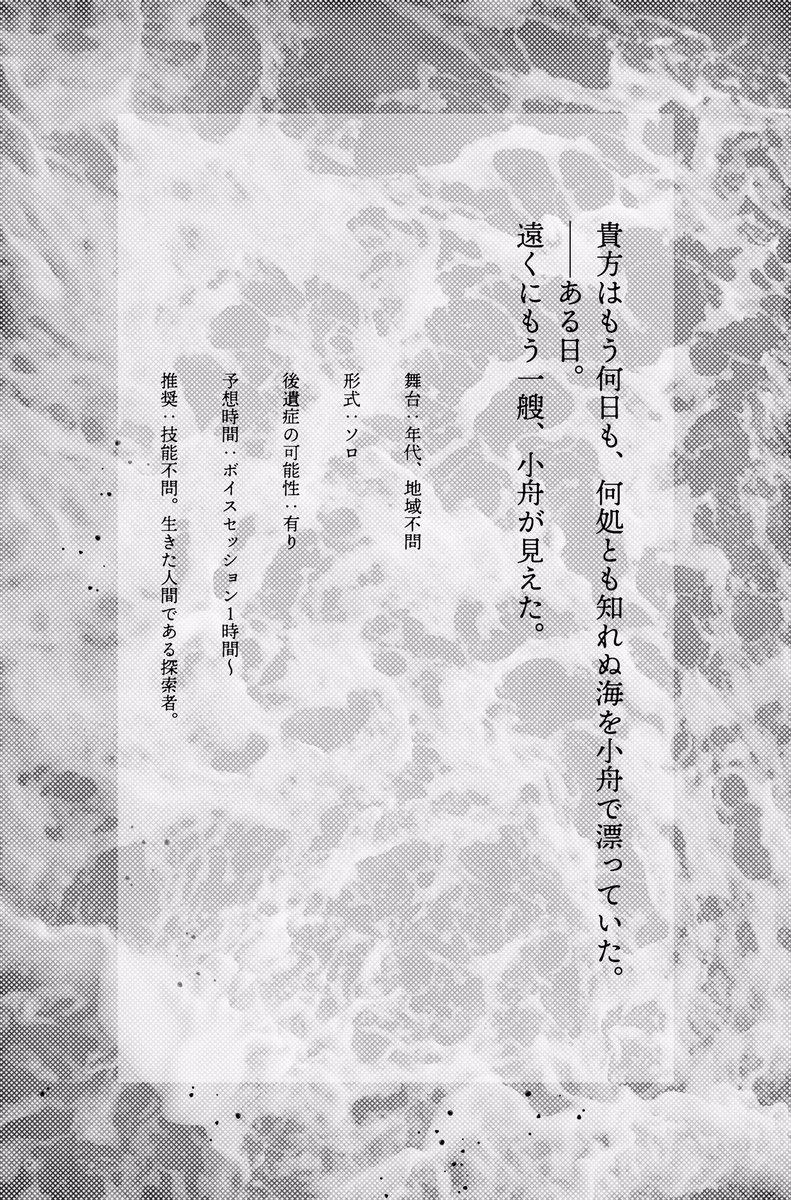 貴方はもう何日も、何処とも知れぬ海を小舟で漂っていた。
――ある日。
遠くにもう一艘、小舟が見えた。
舞台：年代、地域不問
形式：ソロ
後遺症の可能性：有り
予想時間：ボイスセッション1時間〜
推奨：技能不問。生きた人間である探索者。